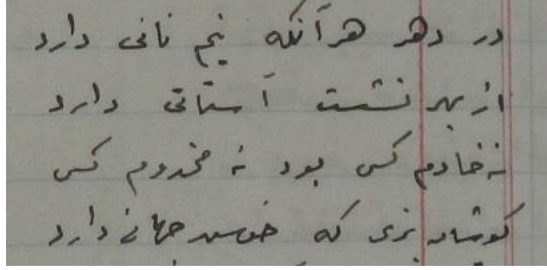 در دهر هر آنکه نیم نانی دارد
از بهر نشست آستانی دارد
نه خادم کس بود نه مخدوم کس
گو شاد بزی که خوش جهانی دارد